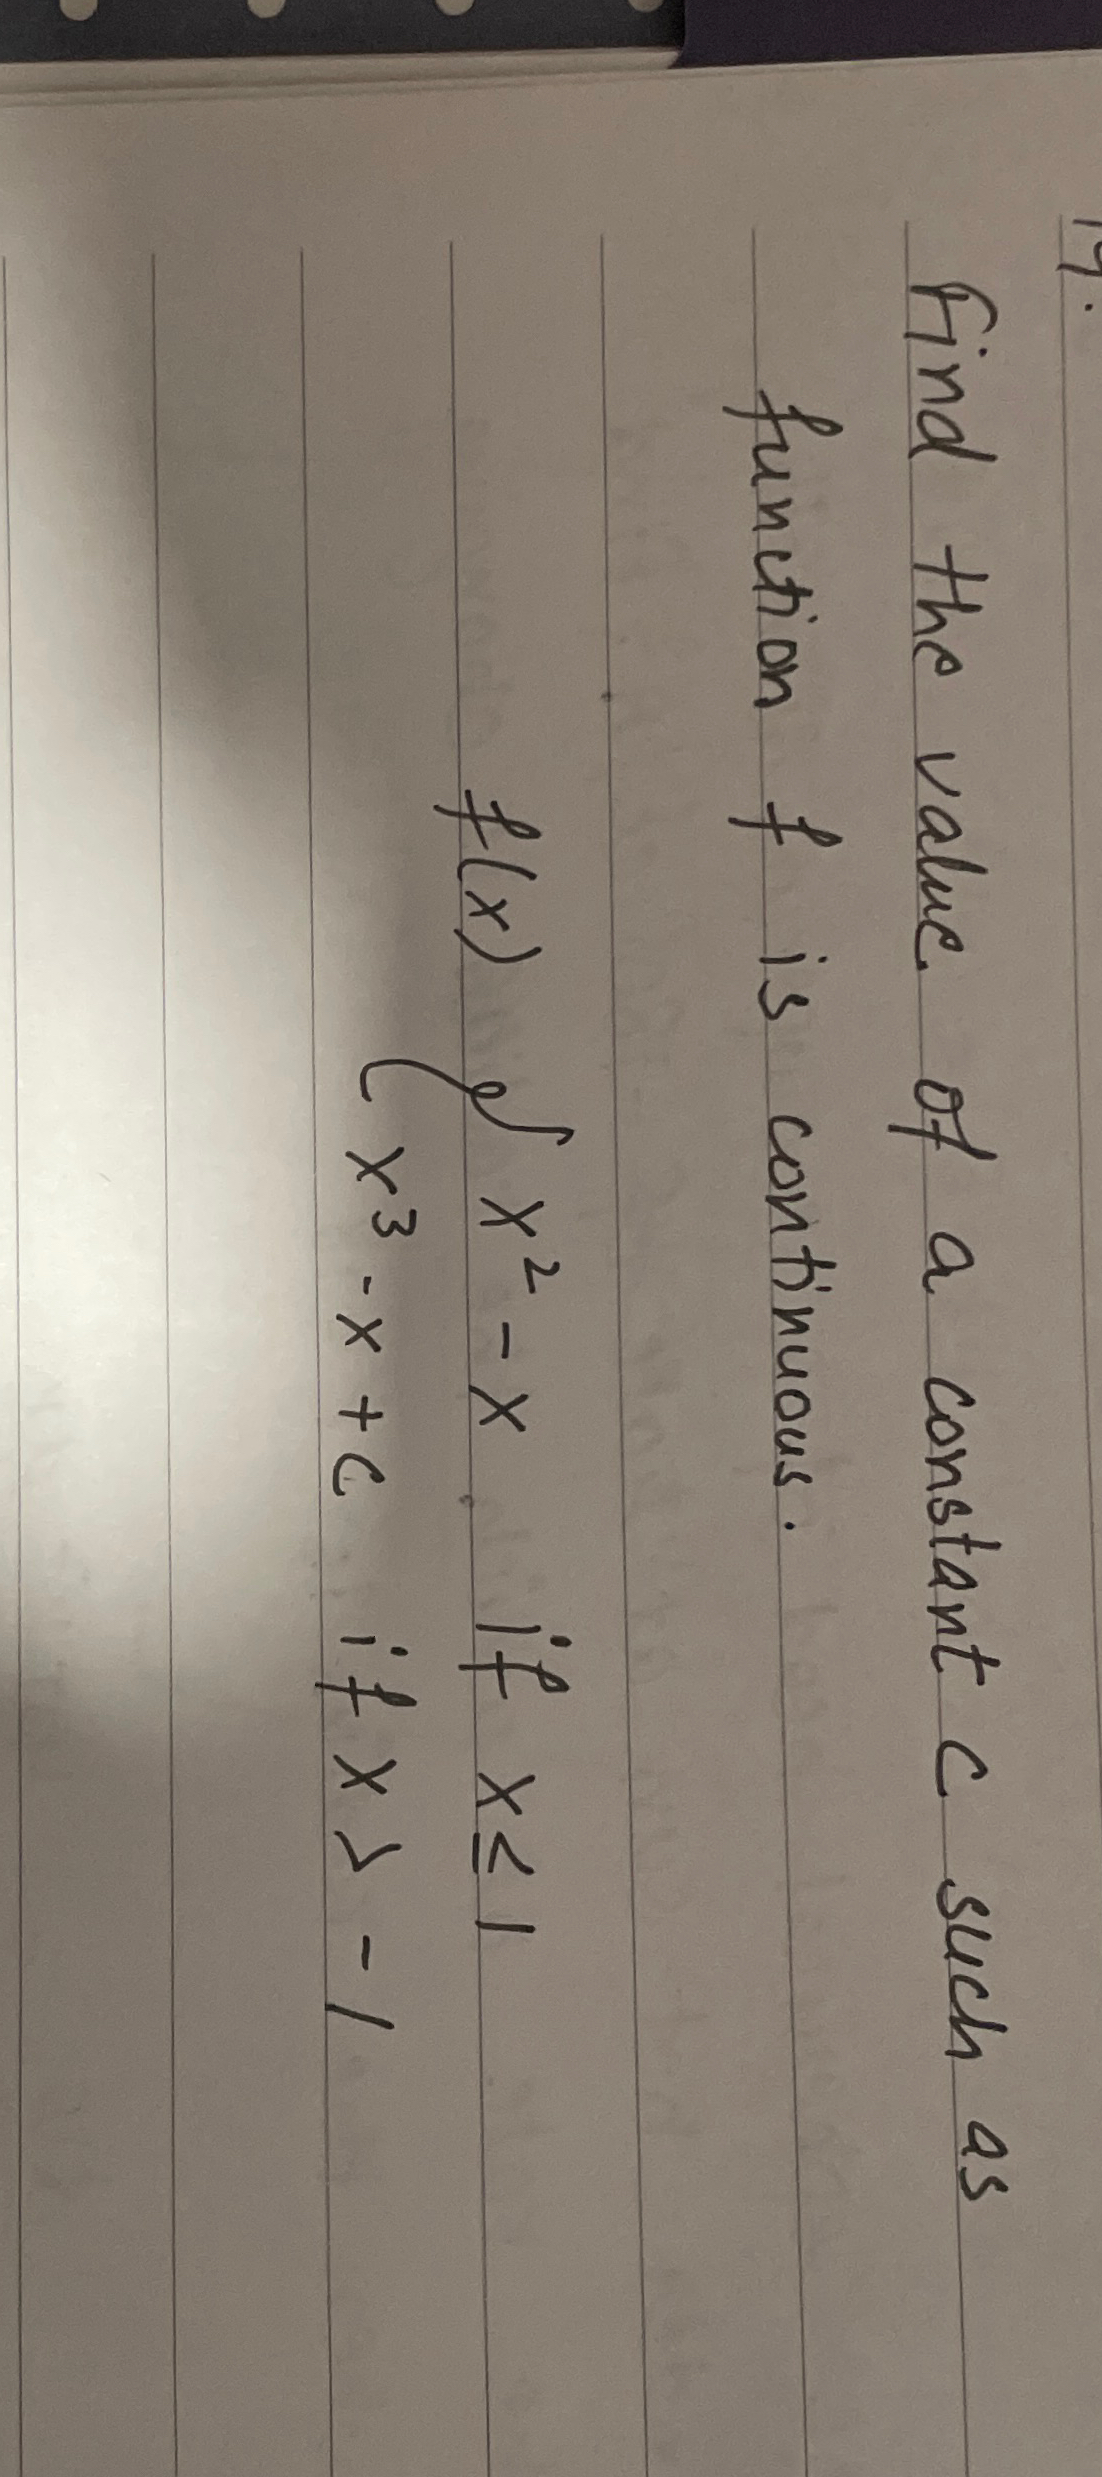 19.
Find the value of a constant c such as
function f is continuous.
f(x) { x² - x if x ≤ 1
x³ - x + c if x > - 1